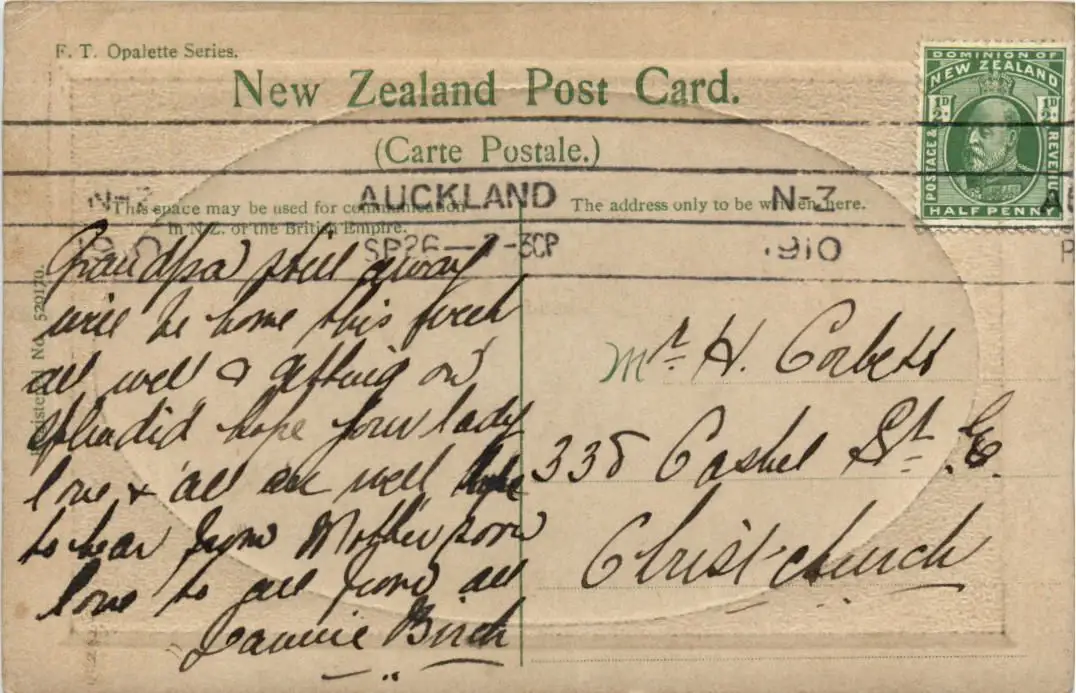 F. T. Opalette Series.
New Zealand Post Card.
(Carte Postale.)
DOMINION OF
NEW ZEALAND
½D ½D
POSTAGE & REVENUE
HALF PENNY
N-Z AUCKLAND N-Z
1910 SP26 — -30P 1910
This space may be used for communication
in N.Z. or the British Empire.
The address only to be written here.
Registered No. 520170.
Grandpa still away
will be home this week
all well & getting on
splendid hope your lady
love & all are well hope
to hear from Mother soon
love to all from all
Birch
Mr. H. Corbett
338 Cashel St. E.
Christchurch